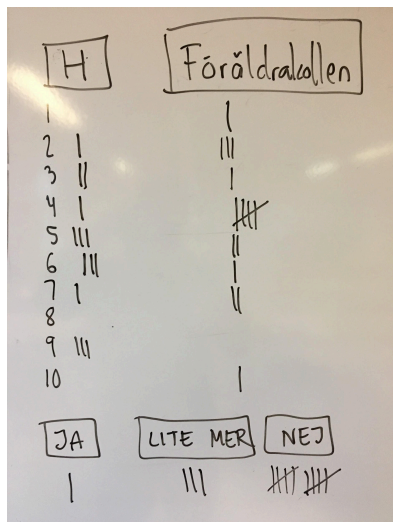 H Föräldrakollen
1 |
2 | |||
3 || |
4 | 卌
5 ||| ||
6 ||| |
7 | ||
8
9 |||
10 |
JA LITE MER NEJ
| ||| 卌 卌